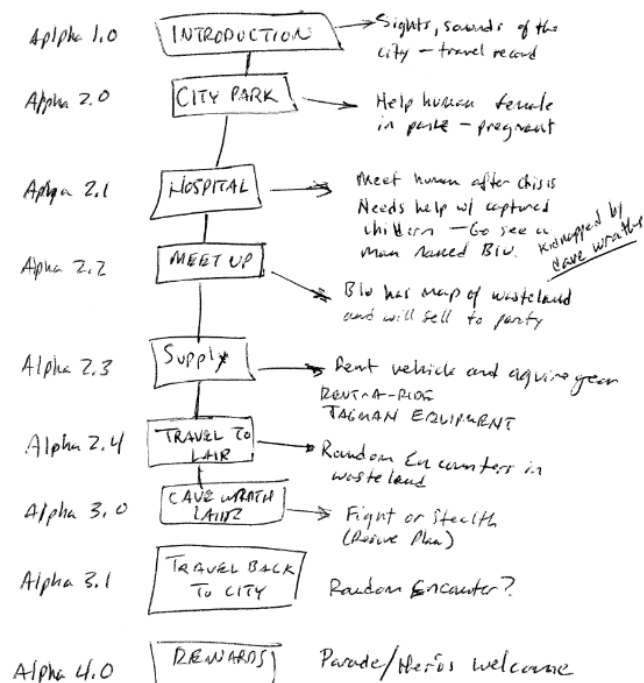 Aplpha 1.0
INTRODUCTION
Sights, sounds of the
city - travel record
Alpha 2.0
CITY PARK
Help human female
in park - pregnant
Alpha 2.1
HOSPITAL
Meet human after crisis
Needs help w/ captured
children - Go see a
man named Biv.
Kidnapped by
Cave wraths
Alpha 2.2
MEET UP
Biv has map of wasteland
and will sell to party
Alpha 2.3
Supply
Rent vehicle and aquire gear
RENT-A-RIDE
TAGMAN EQUIPMENT
Alpha 2.4
TRAVEL TO
LAIR
Random Encounters in
wasteland
Alpha 3.0
CAVE WRATH
LAIR
Fight or Stealth
(Rescue Plan)
Alpha 3.1
TRAVEL BACK
TO CITY
Random Encounter?
Alpha 4.0
REWARDS
Parade/Hero's welcome